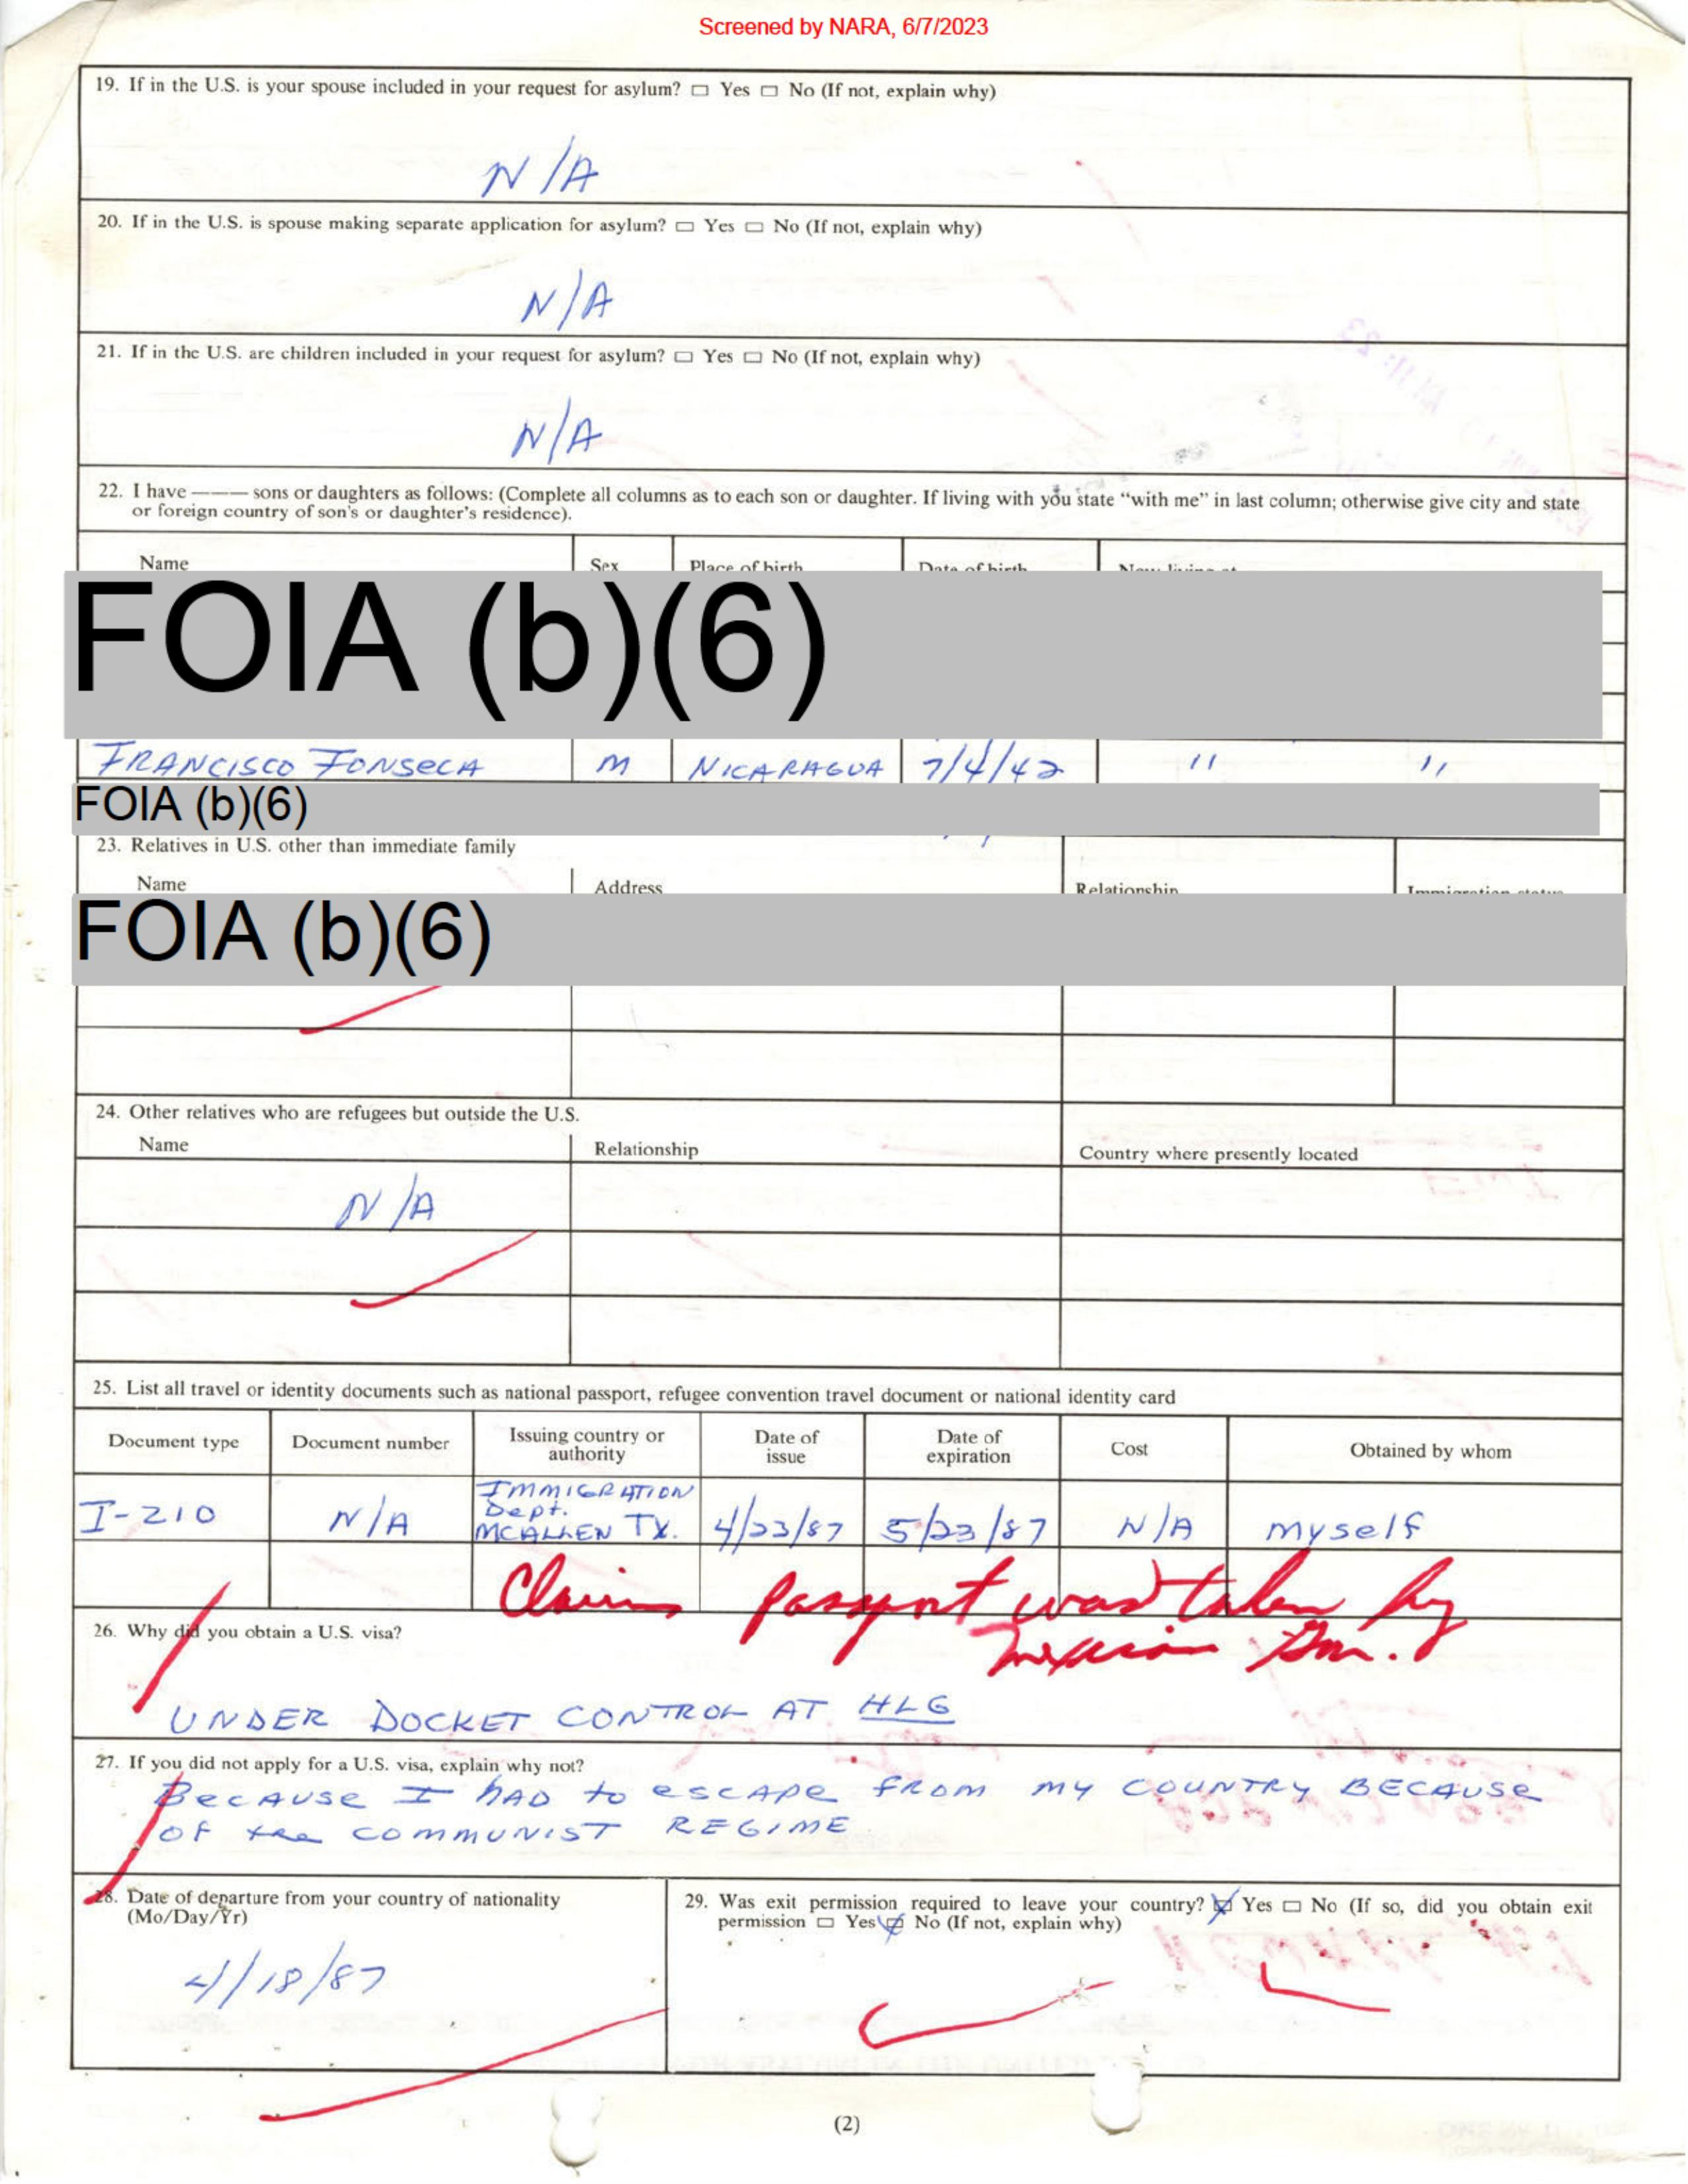 Screened by NARA, 6/7/2023
19. If in the U.S. is your spouse included in your request for asylum? ☐ Yes ☐ No (If not, explain why)
N/A
20. If in the U.S. is spouse making separate application for asylum? ☐ Yes ☐ No (If not, explain why)
N/A
21. If in the U.S. are children included in your request for asylum? ☐ Yes ☐ No (If not, explain why)
N/A
22. I have ——— sons or daughters as follows: (Complete all columns as to each son or daughter. If living with you state “with me” in last column; otherwise give city and state
or foreign country of son's or daughter's residence).
Name Sex Place of birth Date of birth Now living at
FOIA (b)(6)
FRANCISCO FONSECA M NICARAGUA 7/4/42 " "
FOIA (b)(6)
23. Relatives in U.S. other than immediate family
Name Address Relationship Immigration status
FOIA (b)(6)
24. Other relatives who are refugees but outside the U.S.
Name Relationship Country where presently located
N/A
25. List all travel or identity documents such as national passport, refugee convention travel document or national identity card
Document type Document number Issuing country or authority Date of issue Date of expiration Cost Obtained by whom
I-210 N/A IMMIGRATION Dept. MCALLEN TX. 4/23/87 5/23/87 N/A myself
Claims passport was taken by
Mexican Im.
26. Why did you obtain a U.S. visa?
UNDER DOCKET CONTROL AT HLG
27. If you did not apply for a U.S. visa, explain why not?
Because I HAD to escape FROM MY COUNTRY BECAUSE
OF the COMMUNIST REGIME
28. Date of departure from your country of nationality
(Mo/Day/Yr)
4/18/87
29. Was exit permission required to leave your country? ☒ Yes ☐ No (If so, did you obtain exit
permission ☐ Yes ☒ No (If not, explain why)
(2)